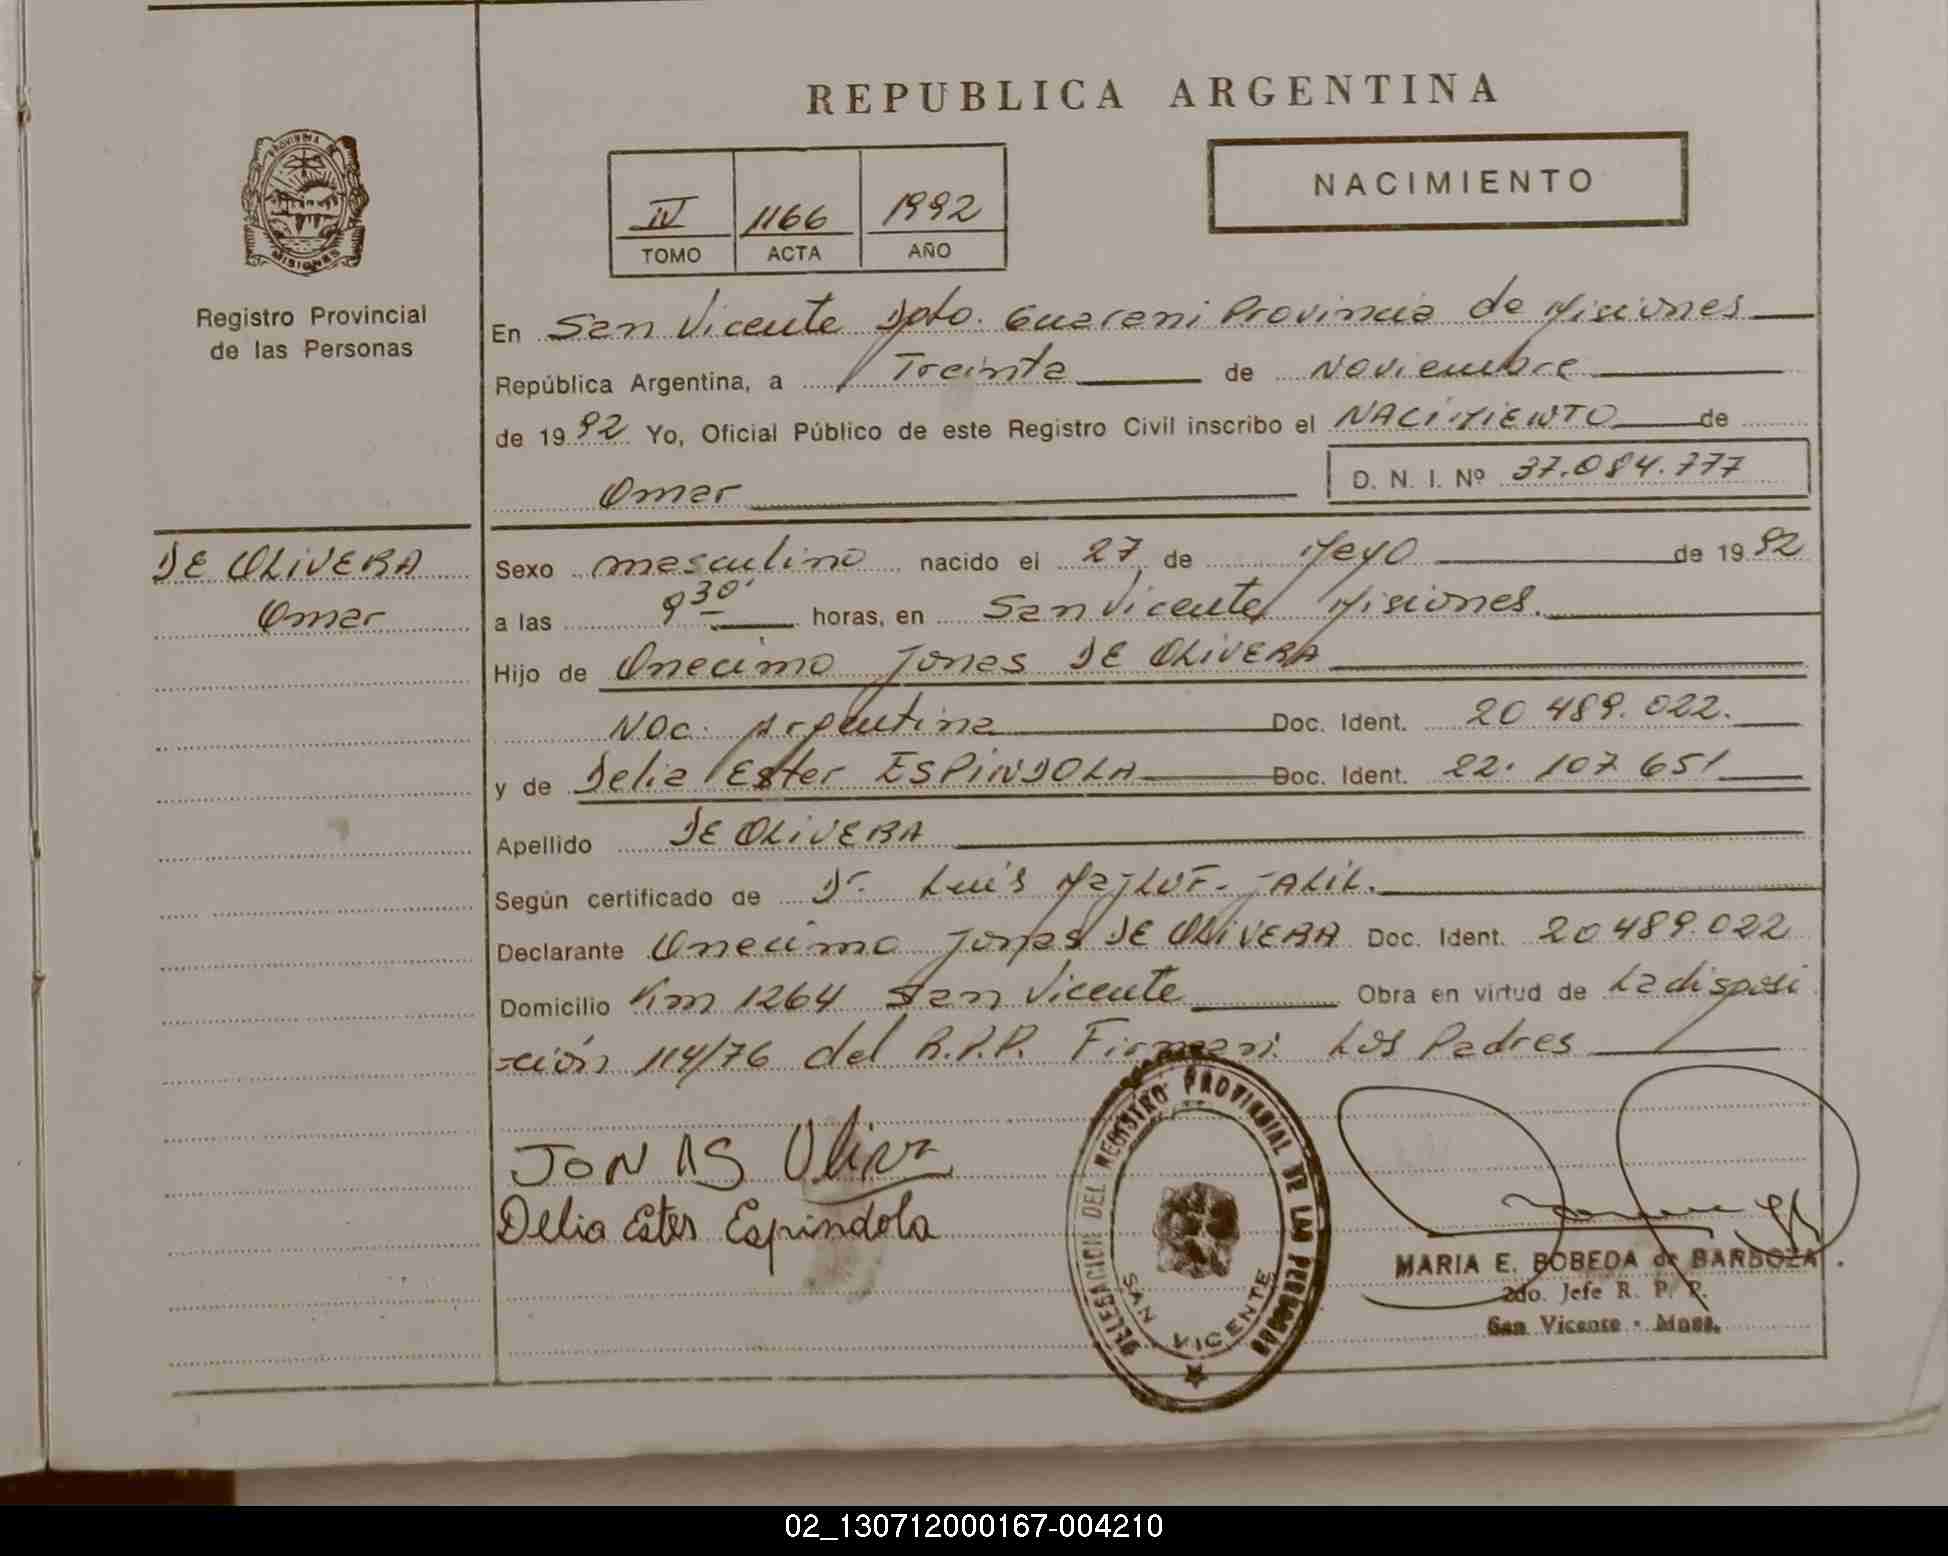 REPUBLICA ARGENTINA
NACIMIENTO
IV 1166 1992
TOMO ACTA AÑO
PROVINCIA DE MISIONES
Registro Provincial
de las Personas
En San Vicente Dpto. Guarani Provincia de Misiones
República Argentina, a Treinta de Noviembre
de 1992 Yo, Oficial Público de este Registro Civil inscribo el NACIMIENTO de
Omar D. N. I. Nº 37.084.777
DE OLIVERA
Omar
Sexo masculino nacido el 27 de Mayo de 1992
a las 9 30' horas, en San Vicente Misiones.
Hijo de Onecimo Jonas DE OLIVERA
Nac. Argentina Doc. Ident. 20 489.022.
y de Delia Ester ESPINDOLA Doc. Ident. 22.107 651
Apellido DE OLIVERA
Según certificado de Dr. Luis MajLUF-JALIL.
Declarante Onecimo Jonas DE OLIVERA Doc. Ident. 20 489.022
Domicilio Km 1264 San Vicente Obra en virtud de La disposi
-ción 114/76 del R.P.P. Firman: Los Padres
JONAS Oliva
Delia Ester Espindola
DELEGACION DEL REGISTRO PROVINCIAL DE LAS PERSONAS
SAN VICENTE
MARIA E. BOBEDA de BARBOZA
2do. Jefe R. P. P.
San Vicente - Mnes.
02_130712000167-004210